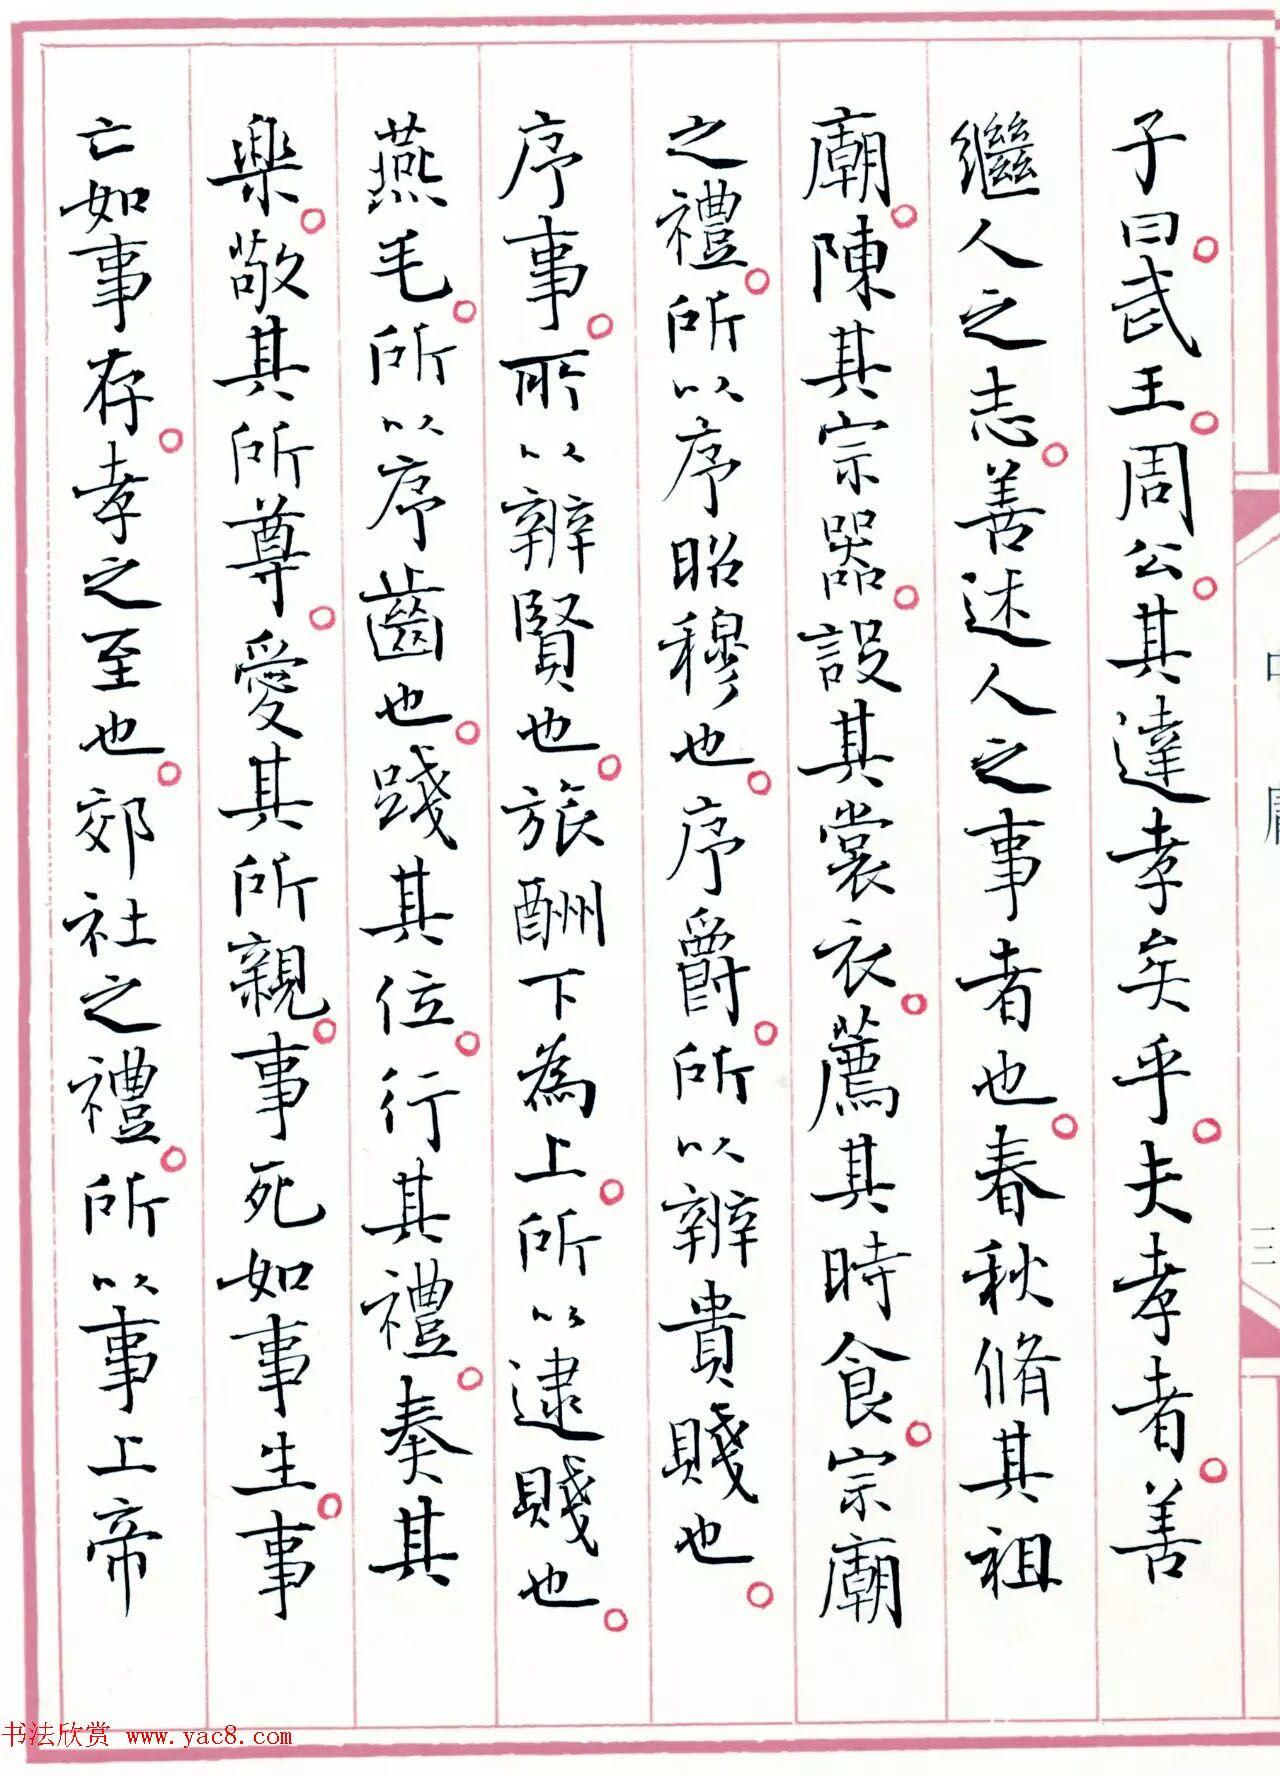 子曰。武王。周公。其達孝矣乎。夫孝者。善
繼人之志。善述人之事者也。春秋脩其祖
廟。陳其宗器。設其裳衣。薦其時食。宗廟
之禮。所以序昭穆也。序爵。所以辨貴賤也。
序事。所以辨賢也。旅酬下為上。所以逮賤也。
燕毛。所以序齒也。踐其位。行其禮。奏其
樂。敬其所尊。愛其所親。事死如事生。事
亡如事存。孝之至也。郊社之禮。所以事上帝
书法欣赏 www.yac8.com